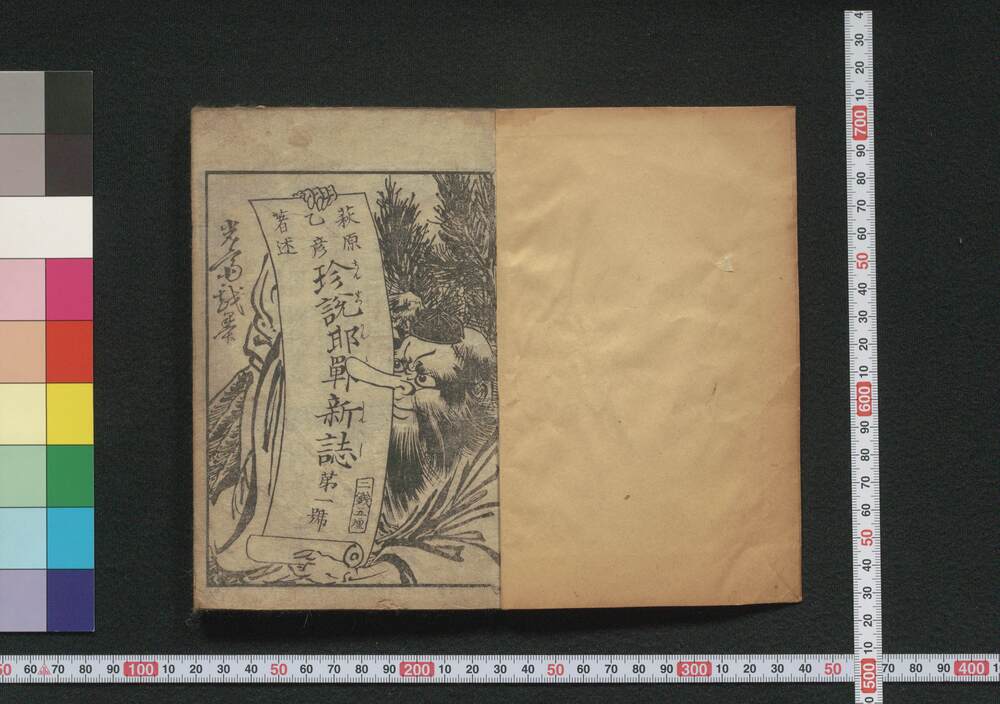 萩原
乙彦
著述
珍説耶戰新誌
第一號
三銭五厘
30 20 10 700 90 80 70 60 50 40 30 20 10 600 90 80 70 60 50 40 30 20 10 500
50 60 70 80 90 100 10 20 30 40 50 60 70 80 90 200 10 20 30 40 50 60 70 80 90 300 10 20 30 40 50 70 80 90 400